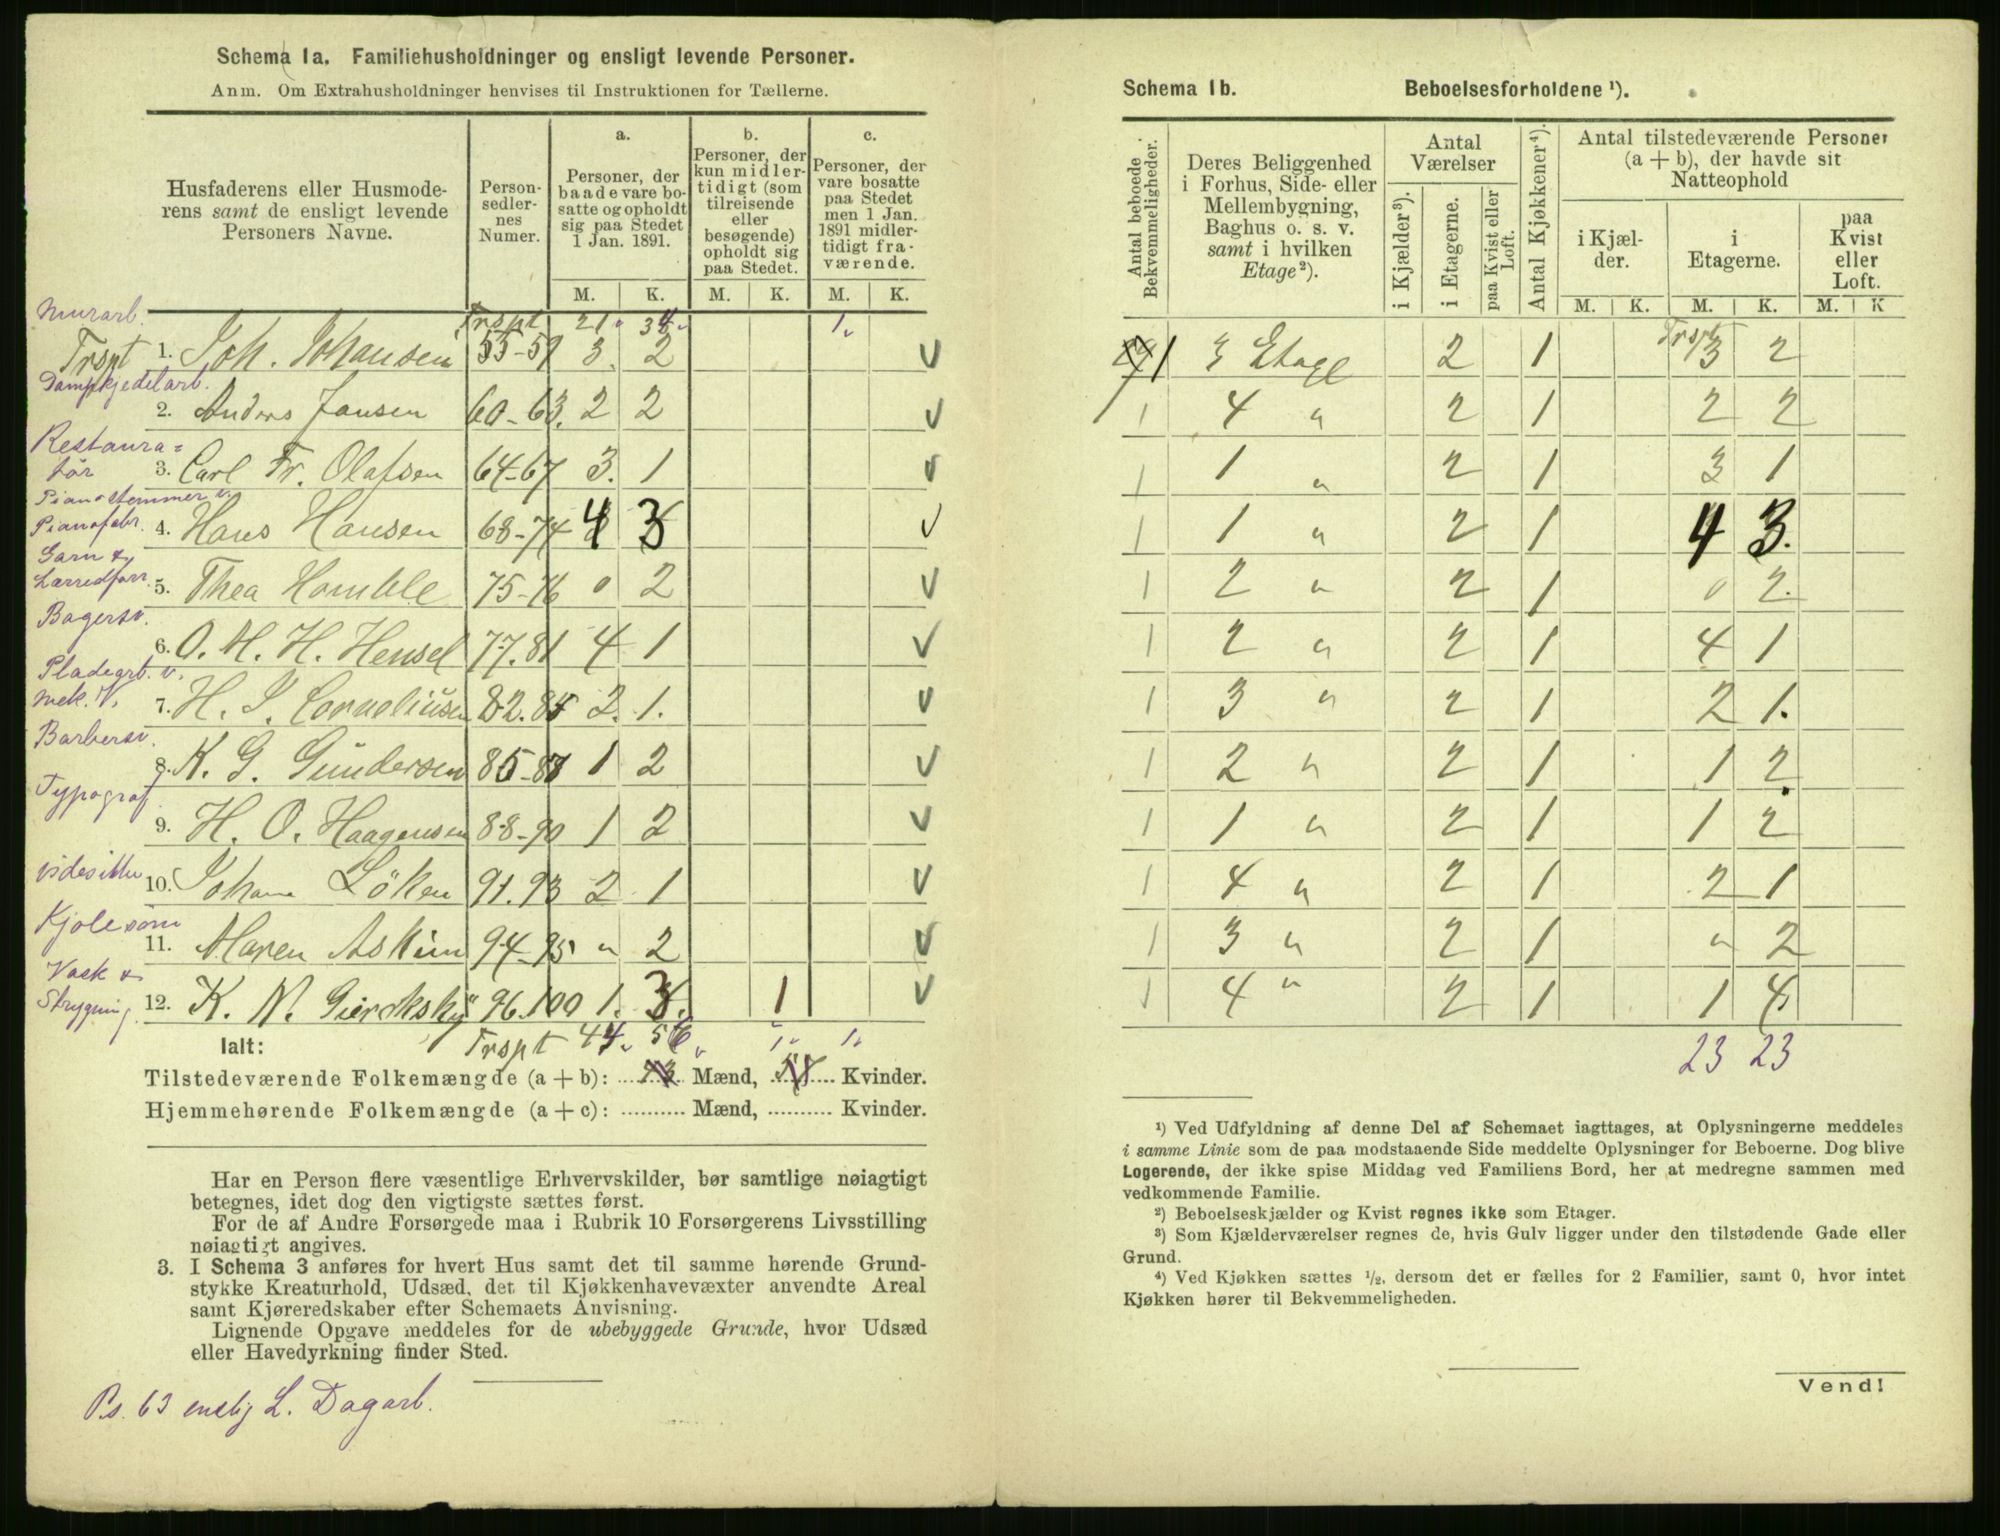 Schema 1a. Familiehusholdninger og ensligt levende Personer.
Anm. Om Extrahusholdninger henvises til Instruktionen for Tællerne.
Husfaderens eller Husmoderens samt de ensligt levende Personers Navne.
Personsedlernes Numer.
a. Personer, der baade vare bosatte og opholdt sig paa Stedet 1 Jan. 1891.
b. Personer, der kun midlertidigt (som tilreisende eller besøgende) opholdt sig paa Stedet.
c. Personer, der vare bosatte paa Stedet men 1 Jan. 1891 midlertidigt fraværende.
M. K. M. K. M. K.
Murarb. Trspt 21 34 1
Trspt 1. Joh. Johansen 55-59 3. 2
Dampkjedelarb.
2. Anders Jansen 60-63. 2 2
Restaura=
tør 3. Carl Fr. Olafsen 64-67 3. 1
Pianostemmer v.
Pianofabr. 4. Hans Hansen 68-74 4 3
Garn &
Lærredforr. 5. Thea Homble 75-76 0 2
Bagersv.
6. O. M. H. Hensel 77.81 4 1
Pladearb. v.
Mek. V. 7. H. J. Corneliusen 82.85 2. 1.
Barbersv.
8. K. G. Gundersen 85-87 1 2
Typograf
9. H. O. Haagensen 88-90 1 2
10. Johan Löken 91.93 2 1
Kjolesøm
11. Maren Askim 94-95 „ 2
Vask &
Strygning 12. K. N. 96.100 1. 3. 1
Ialt: Trspt 44 56 1 1
Tilstedeværende Folkemængde (a + b): Mænd, Kvinder.
Hjemmehørende Folkemængde (a + c): Mænd, Kvinder.
Har en Person flere væsentlige Erhvervskilder, bør samtlige nøiagtigt
betegnes, idet dog den vigtigste sættes først.
For de af Andre Forsørgede maa i Rubrik 10 Forsørgerens Livsstilling
nøiagtigt angives.
3. I Schema 3 anføres for hvert Hus samt det til samme hørende Grund-
stykke Kreaturhold, Udsæd, det til Kjøkkenhavevæxter anvendte Areal
samt Kjøreredskaber efter Schemaets Anvisning.
Lignende Opgave meddeles for de ubebyggede Grunde, hvor Udsæd
eller Havedyrkning finder Sted.
Ps. 63 enslig L. Dagarb.
Schema 1b. Beboelsesforholdene ¹).
Antal beboede Bekvemmeligheder.
Deres Beliggenhed i Forhus, Side- eller Mellembygning, Baghus o. s. v. samt i hvilken Etage²).
Antal Værelser
i Kjælder³). i Etagerne. paa Kvist eller Loft.
Antal Kjøkkener⁴).
Antal tilstedeværende Personer (a + b), der havde sit Natteophold
i Kjælder. i Etagerne. paa Kvist eller Loft.
M. K. M. K. M. K
Trspt
1 3 Etage 2 1 3 2
1 4 „ 2 1 2 2
1 1 „ 2 1 3 1
1 1 „ 2 1 4 3.
1 2 „ 2 1 0 2.
1 2 „ 2 1 4 1
1 3 „ 2 1 2 1.
1 2 „ 2 1 1 2
1 1 „ 2 1 1 2
1 4 „ 2 1 2 1
1 3 „ 2 1 „ 2
1 4 „ 2 1 1 4
23 23
¹) Ved Udfyldning af denne Del af Schemaet iagttages, at Oplysningerne meddeles
i samme Linie som de paa modstaaende Side meddelte Oplysninger for Beboerne. Dog blive
Logerende, der ikke spise Middag ved Familiens Bord, her at medregne sammen med
vedkommende Familie.
²) Beboelseskjælder og Kvist regnes ikke som Etager.
³) Som Kjælderværelser regnes de, hvis Gulv ligger under den tilstødende Gade eller
Grund.
⁴) Ved Kjøkken sættes ½, dersom det er fælles for 2 Familier, samt 0, hvor intet
Kjøkken hører til Bekvemmeligheden.
Vend!